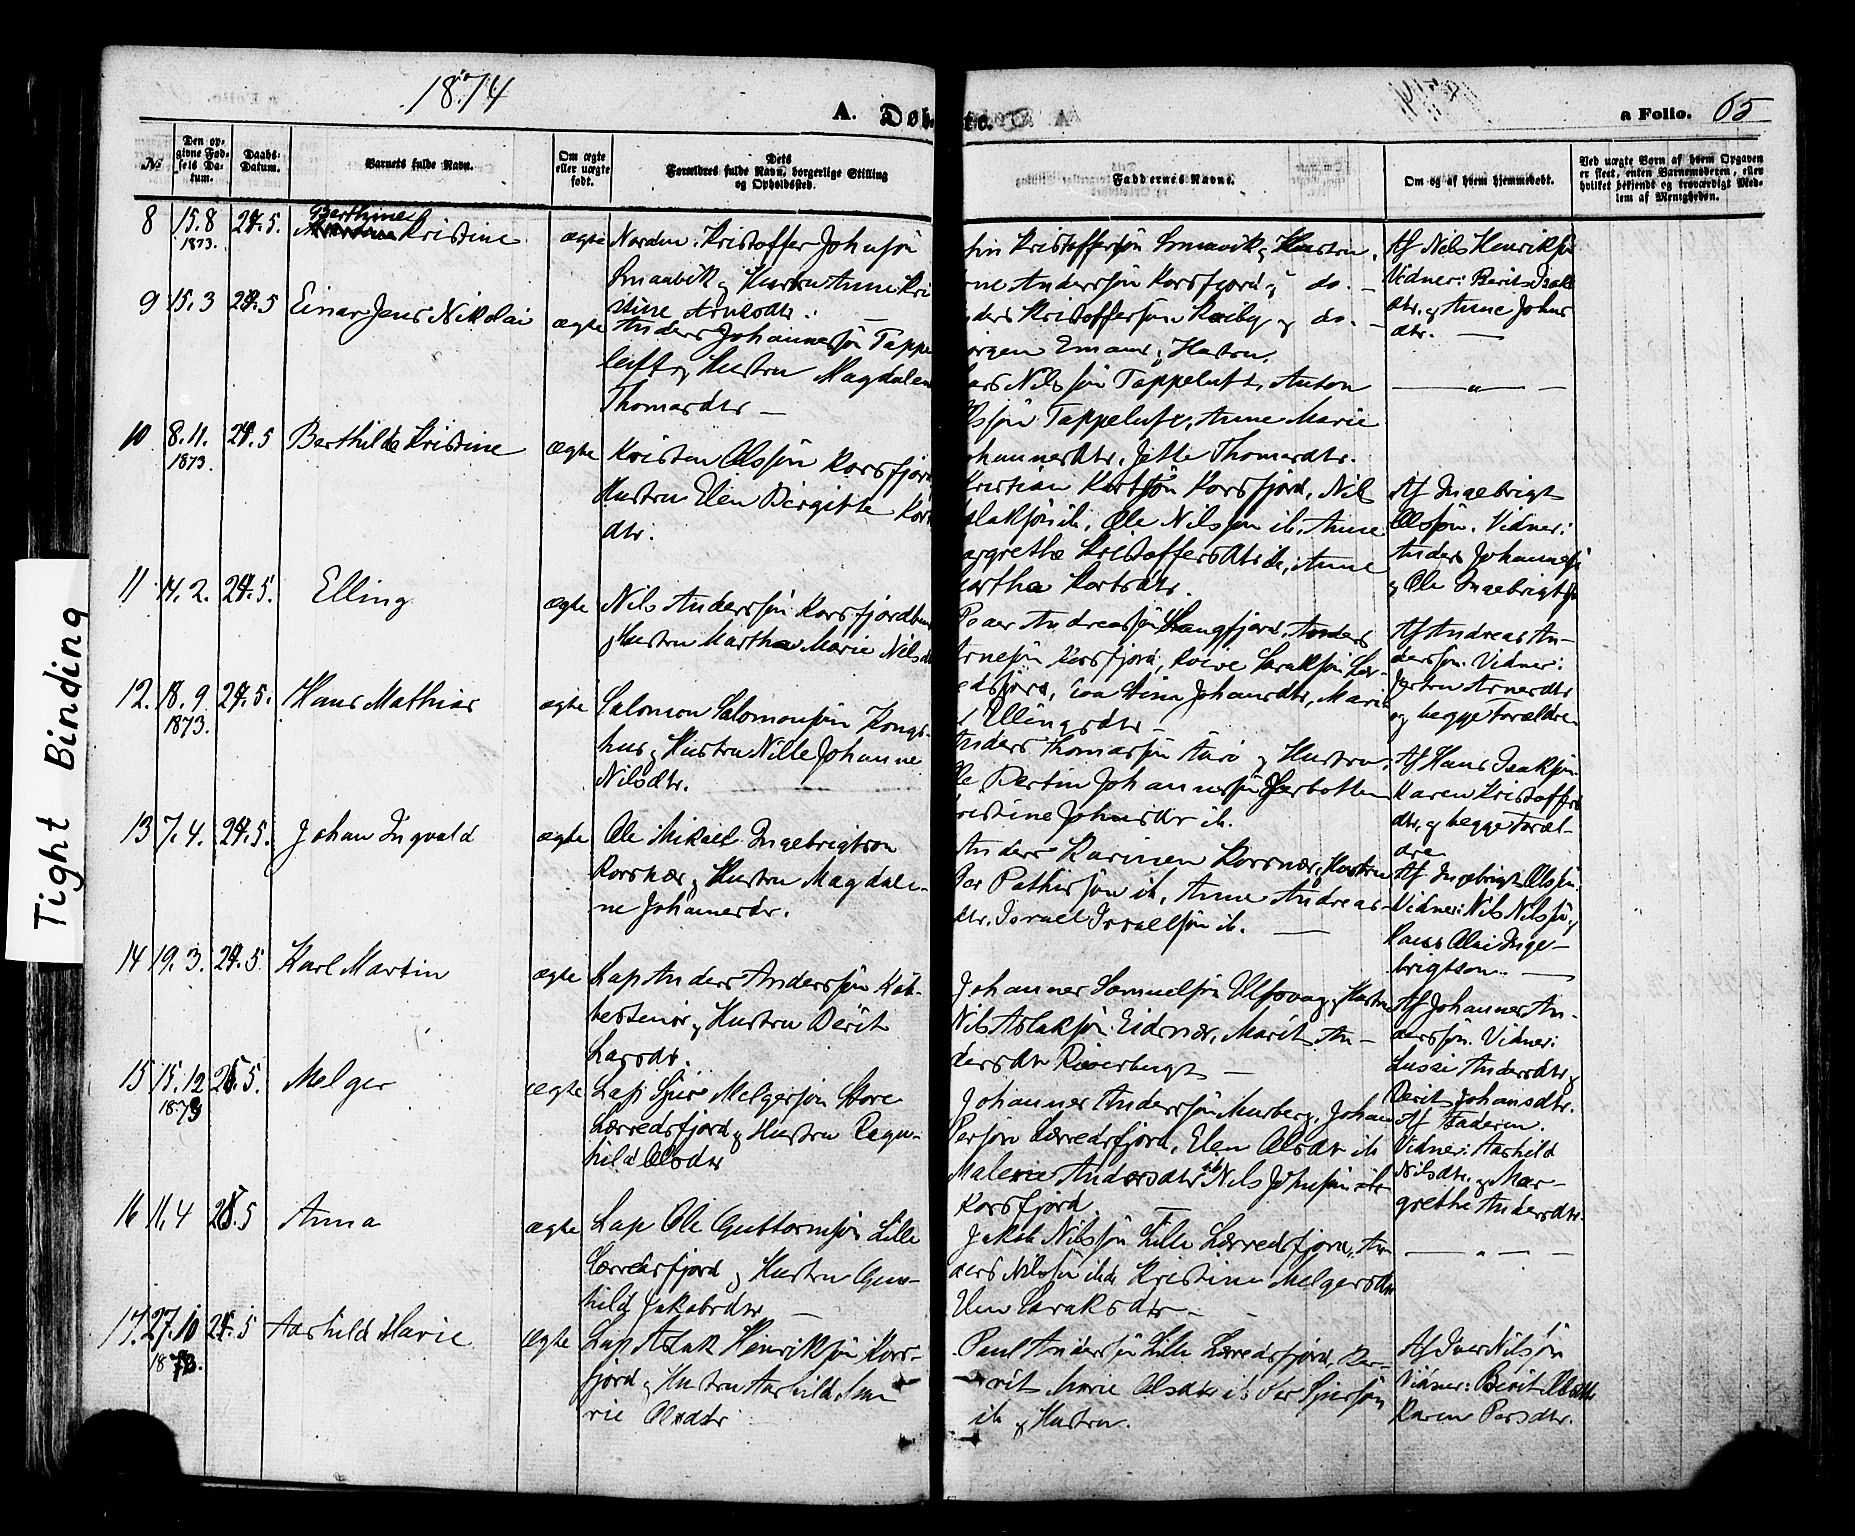 1874
A. Døb
te.
a Folio. 65
№
Den op-
givne Fød-
sels Da-
tum.
Daabs-
Datum.
Barnets fulde Navn.
Om ægte
eller uægte
født.
Dets
Forældres fulde Navn, borgerlige Stilling
og Opholdssted.
Faddernes Navne.
Om og af hvem hjemmedøbt.
Ved uægte Børn af hvem Opgaven
er skeet, enten Barnemoderen, eller
hvilket bekjendt og troværdigt Med-
lem af Menigheden.
Tight Binding
8 15.8 1873. 24.5. Berthine Kristine ægte
Nordm. Kristoffer Johnsøn
Smaavik og Hustru Anne Kri
stine Arnesdtr.
Kristoffersøn Smaavik og Hustru,
Anderssøn Korsfjord og do. —
Kristoffersøn og do. —
Hustru.
Af Nils Henriksøn
Vidner: Berit Isak
dtr. og Anne Johns
dtr. —
9 15.3 24.5 Einar Jens Nikolai ægte
Anders Johannessøn Tappe
luft og Hustru Magdalen
Thomasdtr —
Nilssøn Tappeluft, Anton
lssøn Tappeluft, Anne Marie
ohannesdtr, Jette Thomasdtr.
— " —
10 8.11. 1873. 24.5 Barthilde Kristine ægte
Kristen Olssøn Korsfjord
Hustru Elen Birgitte Kort
dtr.
Kristian Kortsøn Korsfjord, Nils
slaksøn ib, Ole Nilssøn ib, Anne
argrethe Kristoffersdtr ib, Anne
artha Kortsdtr.
Af Ingebrigt
Olssøn. Vidner:
Anders Johannessøn
og Ole Ingebrigtsøn
11 14.2. 24.5. Elling ægte
Nils Anderssøn Korsfjordbun
og Hustru Martha Marie Nilsd
Peder Andreassøn Langfjord, Anders
Arnesøn Korsfjord,
Johansdtr, Marit
Ellingsdtr —
Af Andreas An-
derssøn. Vidner:
Arnesdtr
og begge Forældre
12. 18.9 1873. 24.5. Hans Mathias ægte
Salomon Salomonsøn Kongs-
hus og Hustru Nille Johanne
Nilsdtr.
Anders Thomassøn Aarø og Hustru,
Ole Bertin Johannessøn
ristine Johnsdtr ib.
Af Hans Isaksøn
Karen Kristoffers
dtr. og begge Foræl-
dre
13 7.4. 24.5. Johan Ingvald ægte
Ole Mikael Ingebrigtson
Korsnær og Hustru Magdale-
ne Johannesdtr.
Anders Korsnær, Hustru
Per ib, Anne Andreas-
dtr. Israel Israelsøn ib. —
Af Ingebrigt Olssøn.
Vidner: Nils Nilssøn og
Ingе-
brigtson. —
14 19.3. 24.5 Karl Martin ægte
Lap Anders Anderssøn
og Hustru Berit
Larsdtr.
Johannes Samuelsøn Ulfsvaag og Hustru
Nils Aslaksøn Eidnær, Marit An-
dersdtr —
Af Johannes An-
derssøn. Vidner:
Andersdtr og
Berit Johansdtr.
15 15.12 1873 25.5. Melger ægte
Lap Sjur Melgersøn Store
Lærredsfjord og Hustru Ragn-
hild Olsdtr
Johannes Anderssøn Murberg, Johan
Persøn Lærredsfjord, Elen Olsdtr ib
Malene Andersdtr ib Nils Johnsøn
Korsfjord —
Af Faderen.
Vidner: Aashild
Nilsdtr. og Mar-
grethe Andersdtr.
16 11.4 25.5 Anna ægte
Lap Ole Guttormsøn Lille
Lærredsfjord og Hustru Gun-
hild Jakobsdtr —
Jakob Nilssøn Lille Lærredsfjord, An
ders Nilssøn ib Kristine Melgersdtr
Elen Isaksdtr —
— " —
17. 27.10 1873. 25.5 Aashild Marie ægte
Lap Aslak Henriksøn Kors-
fjord og Hustru Aashild Ma
rie Olsdtr
Paul Anderssøn Lille Lærredsfjord, Be-
rit Marie Olsdtr ib Per Sjursøn
ib og Hustru.
Af Iver Nilssøn
Vidner: Berit Olsdtr
Karen Persdtr.